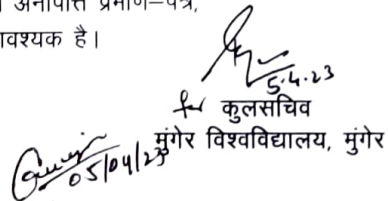 अनापत्ति प्रमाण–पत्र,
वश्यक है।
5.4.23
for कुलसचिव
मुंगेर विश्वविद्यालय, मुंगेर
05/04/23